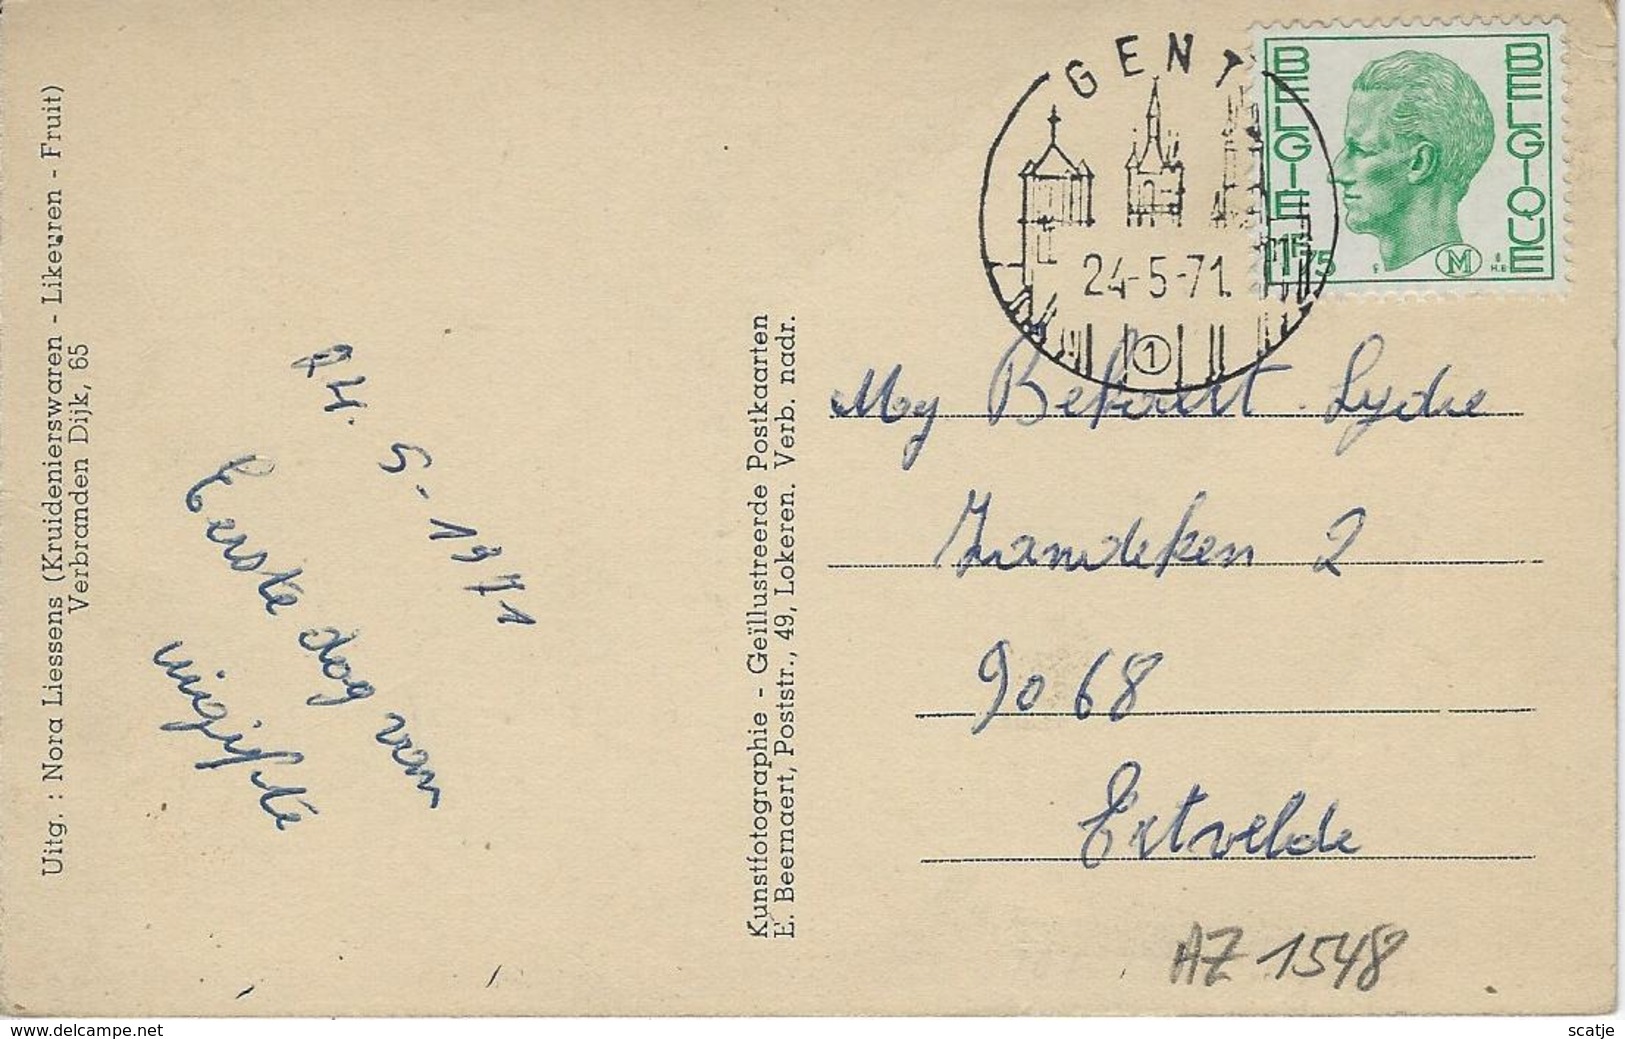 Uitg. : Nora Liessens (Kruidenierswaren - Likeuren - Fruit)
Verbranden Dijk, 65
24. 5-1971
Eerste dag van
uigifte
Kunstfotographie - Geïllustreerde Postkaarten
E. Beernaert, Poststr., 49, Lokeren. Verb. nadr.
GENT
24-5-71
1
BELGIE
BELGIQUE
1F75
M
Mej Bekaert Lydie
Zandeken 2
9068
Ertvelde
AZ 1548
www.delcampe.net
scatje